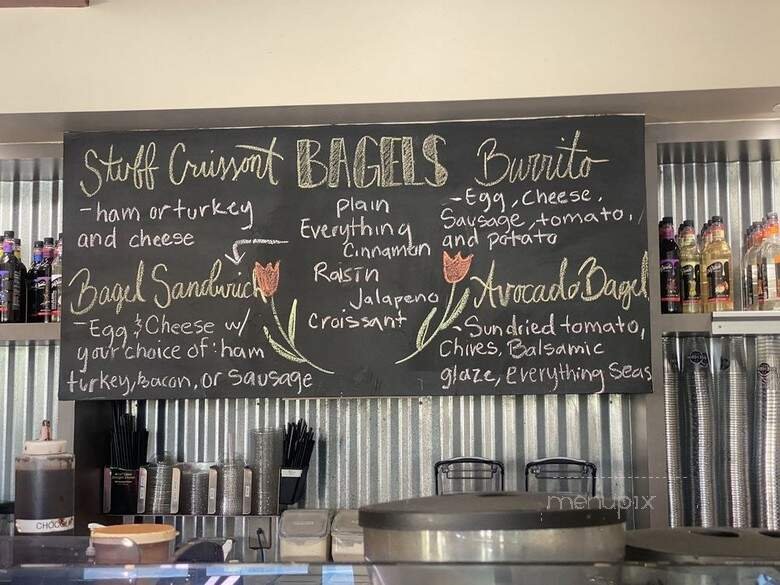 Stuff Cruissont
- ham or turkey
and cheese
Bagel Sandwich
- Egg & Cheese w/
your choice of: ham
turkey, bacon, or Sausage
BAGELS
plain
Everything
Cinnamon
Raisin
Jalapeno
Croissant
Burrito
- Egg, cheese,
Sausage, tomato,
and potato
Avocado Bagel
- Sundried tomato,
Chives, Balsamic
glaze, everything Seas
CHOCO
menupix